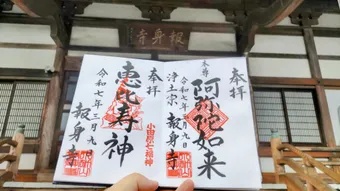 報身寺
奉拝
本尊
阿弥陀如来
浄土宗
報身寺
令和七年三月九日
奉拝
恵比寿神
小田原七福神
令和七年三月九
報身寺